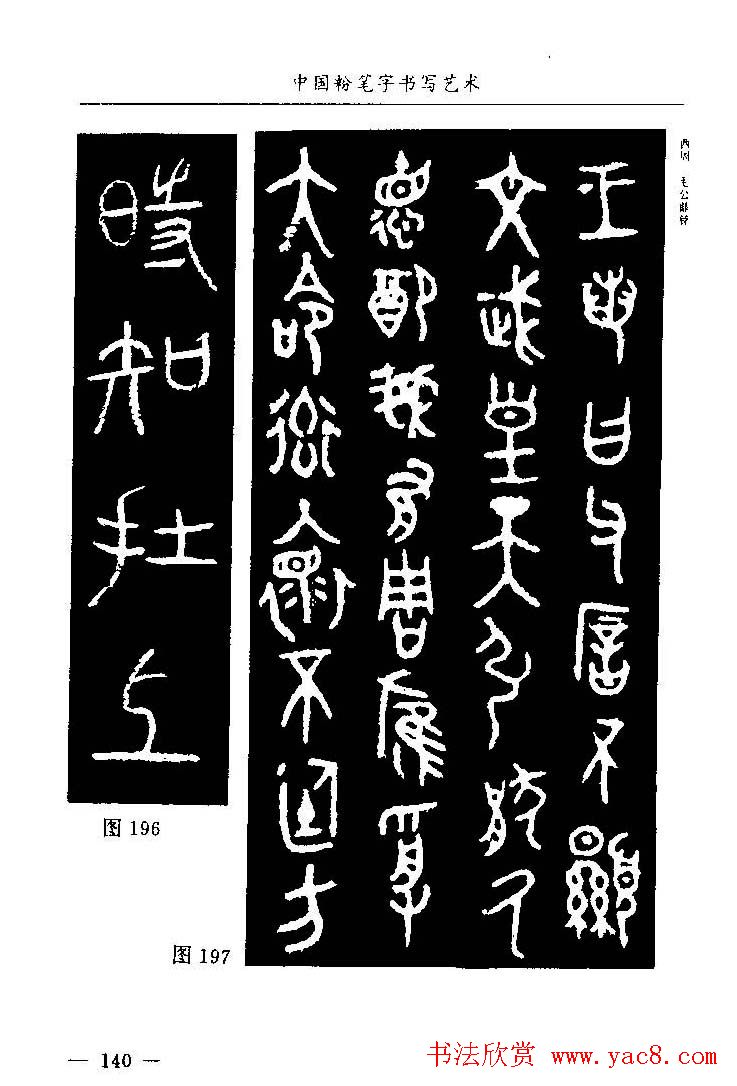 中国粉笔字书写艺术
西周 毛公鼎铭
王若曰父厝不顯
文武皇天引猒氒
德配我有周膺受
大命率懷不廷方
時知
图 196
图 197
— 140 —
书法欣赏 www.yac8.com